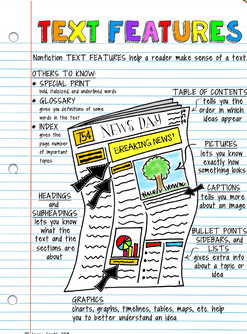 TEXT FEATURES
Nonfiction TEXT FEATURES help a reader make sense of a text.
OTHERS TO KNOW:
• SPECIAL PRINT
bold, italicized, and underlined words
• GLOSSARY
gives you definitions of some
words in the text
• INDEX
gives the
page number
of important
topics
TABLE OF CONTENTS
tells you the
order in which
ideas appear
75¢
NEWS DAY
BREAKING NEWS!
PICTURES
lets you know
exactly how
something looks
CAPTIONS
tells you more
about an image
HEADINGS
and
SUBHEADINGS
lets you know
what the
text and the
sections are
about
BULLET POINTS
SIDEBARS, and
LISTS
gives extra info
about a topic or
idea
GRAPHICS
charts, graphs, timelines, tables, maps, etc. help
you to better understand an idea